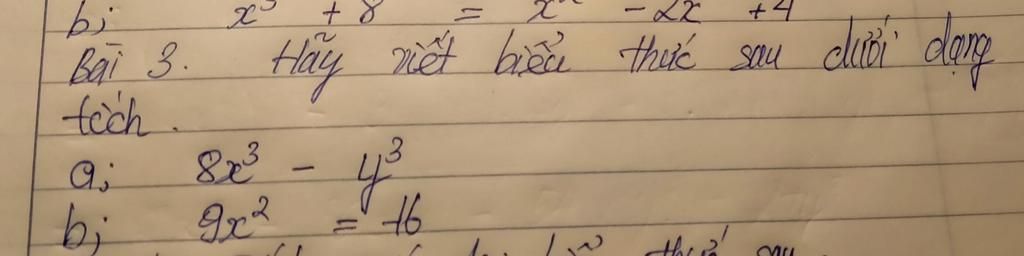 b; x³ + 8 = x² - 2x + 4
Bài 3. Hãy viết biểu thức sau dưới dạng
tích.
a; 8x³ - y³
b; 9x² = 16
thức sau